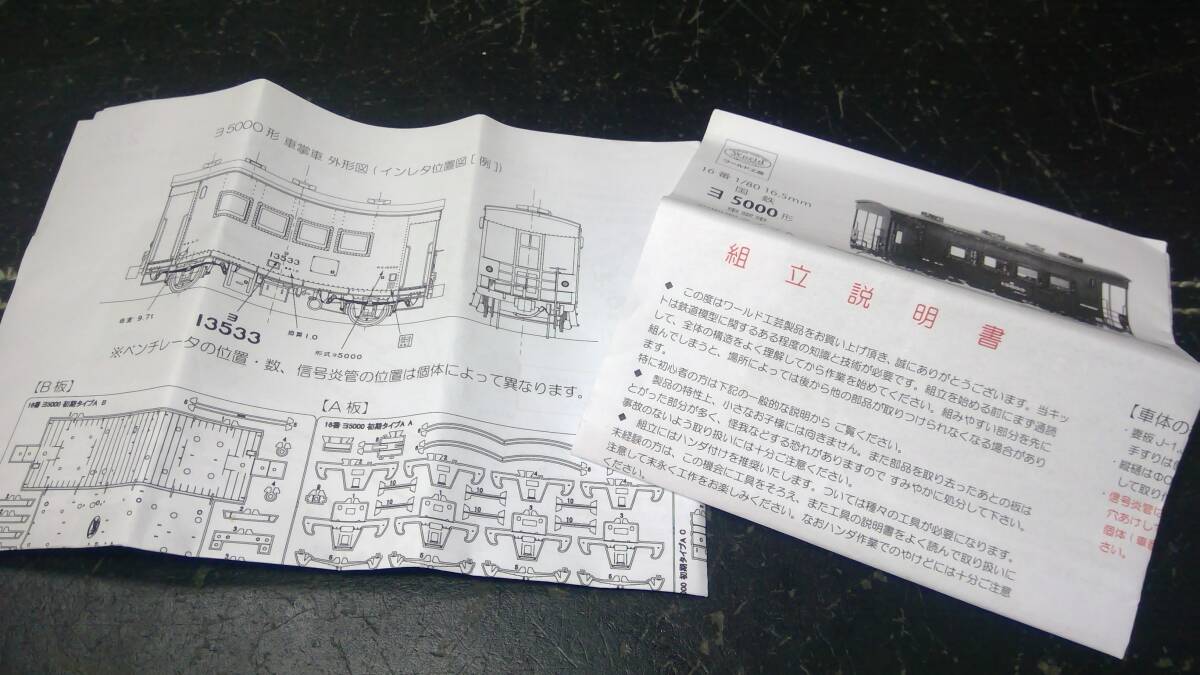 ヨ5000形 車掌車 外形図 (インレタ位置図 [例])
13533
自重 9.71
ヨ
13533
換算1.0
形式ヨ5000
※ベンチレータの位置・数、信号炎管の位置は個体によって異なります。
【B板】
16番 ヨ5000 初期タイプA B
【A板】
16番 ヨ5000 初期タイプA A
ワールド工芸
16番 1/80 16.5mm
国鉄
ヨ5000形
組立説明書
◆ この度はワールド工芸製品をお買い上げ頂き、誠にありがとうございます。当キッ
トは鉄道模型に関するある程度の知識と技術が必要です。組立を始める前にまず通読
して、全体の構造をよく理解してから作業を始めてください。組みやすい部分を先に
組んでしまうと、場所によっては後から他の部品が取りつけられなくなる場合があり
ます。
特に初心者の方は下記の一般的な説明から ご覧ください。
◆ 製品の特性上、小さなお子様には向きません。また部品を取り去ったあとの板は
とがった部分が多く、怪我などする恐れがありますので すみやかに処分して下さい。
事故のないよう取り扱いには十分ご注意ください。
◆ 組立にはハンダ付けを推奨いたします。ついては種々の工具が必要になります。
未経験の方は、この機会に工具をそろえ、また工具の説明書をよく読んで取り扱いに
注意して末永く工作をお楽しみください。なおハンダ作業でのやけどには十分ご注意
ください。
【車体の
・妻板 J-1
手すりは
・縦樋はΦ
して取り
・信号炎管は
穴あけし
個体（車
さい。